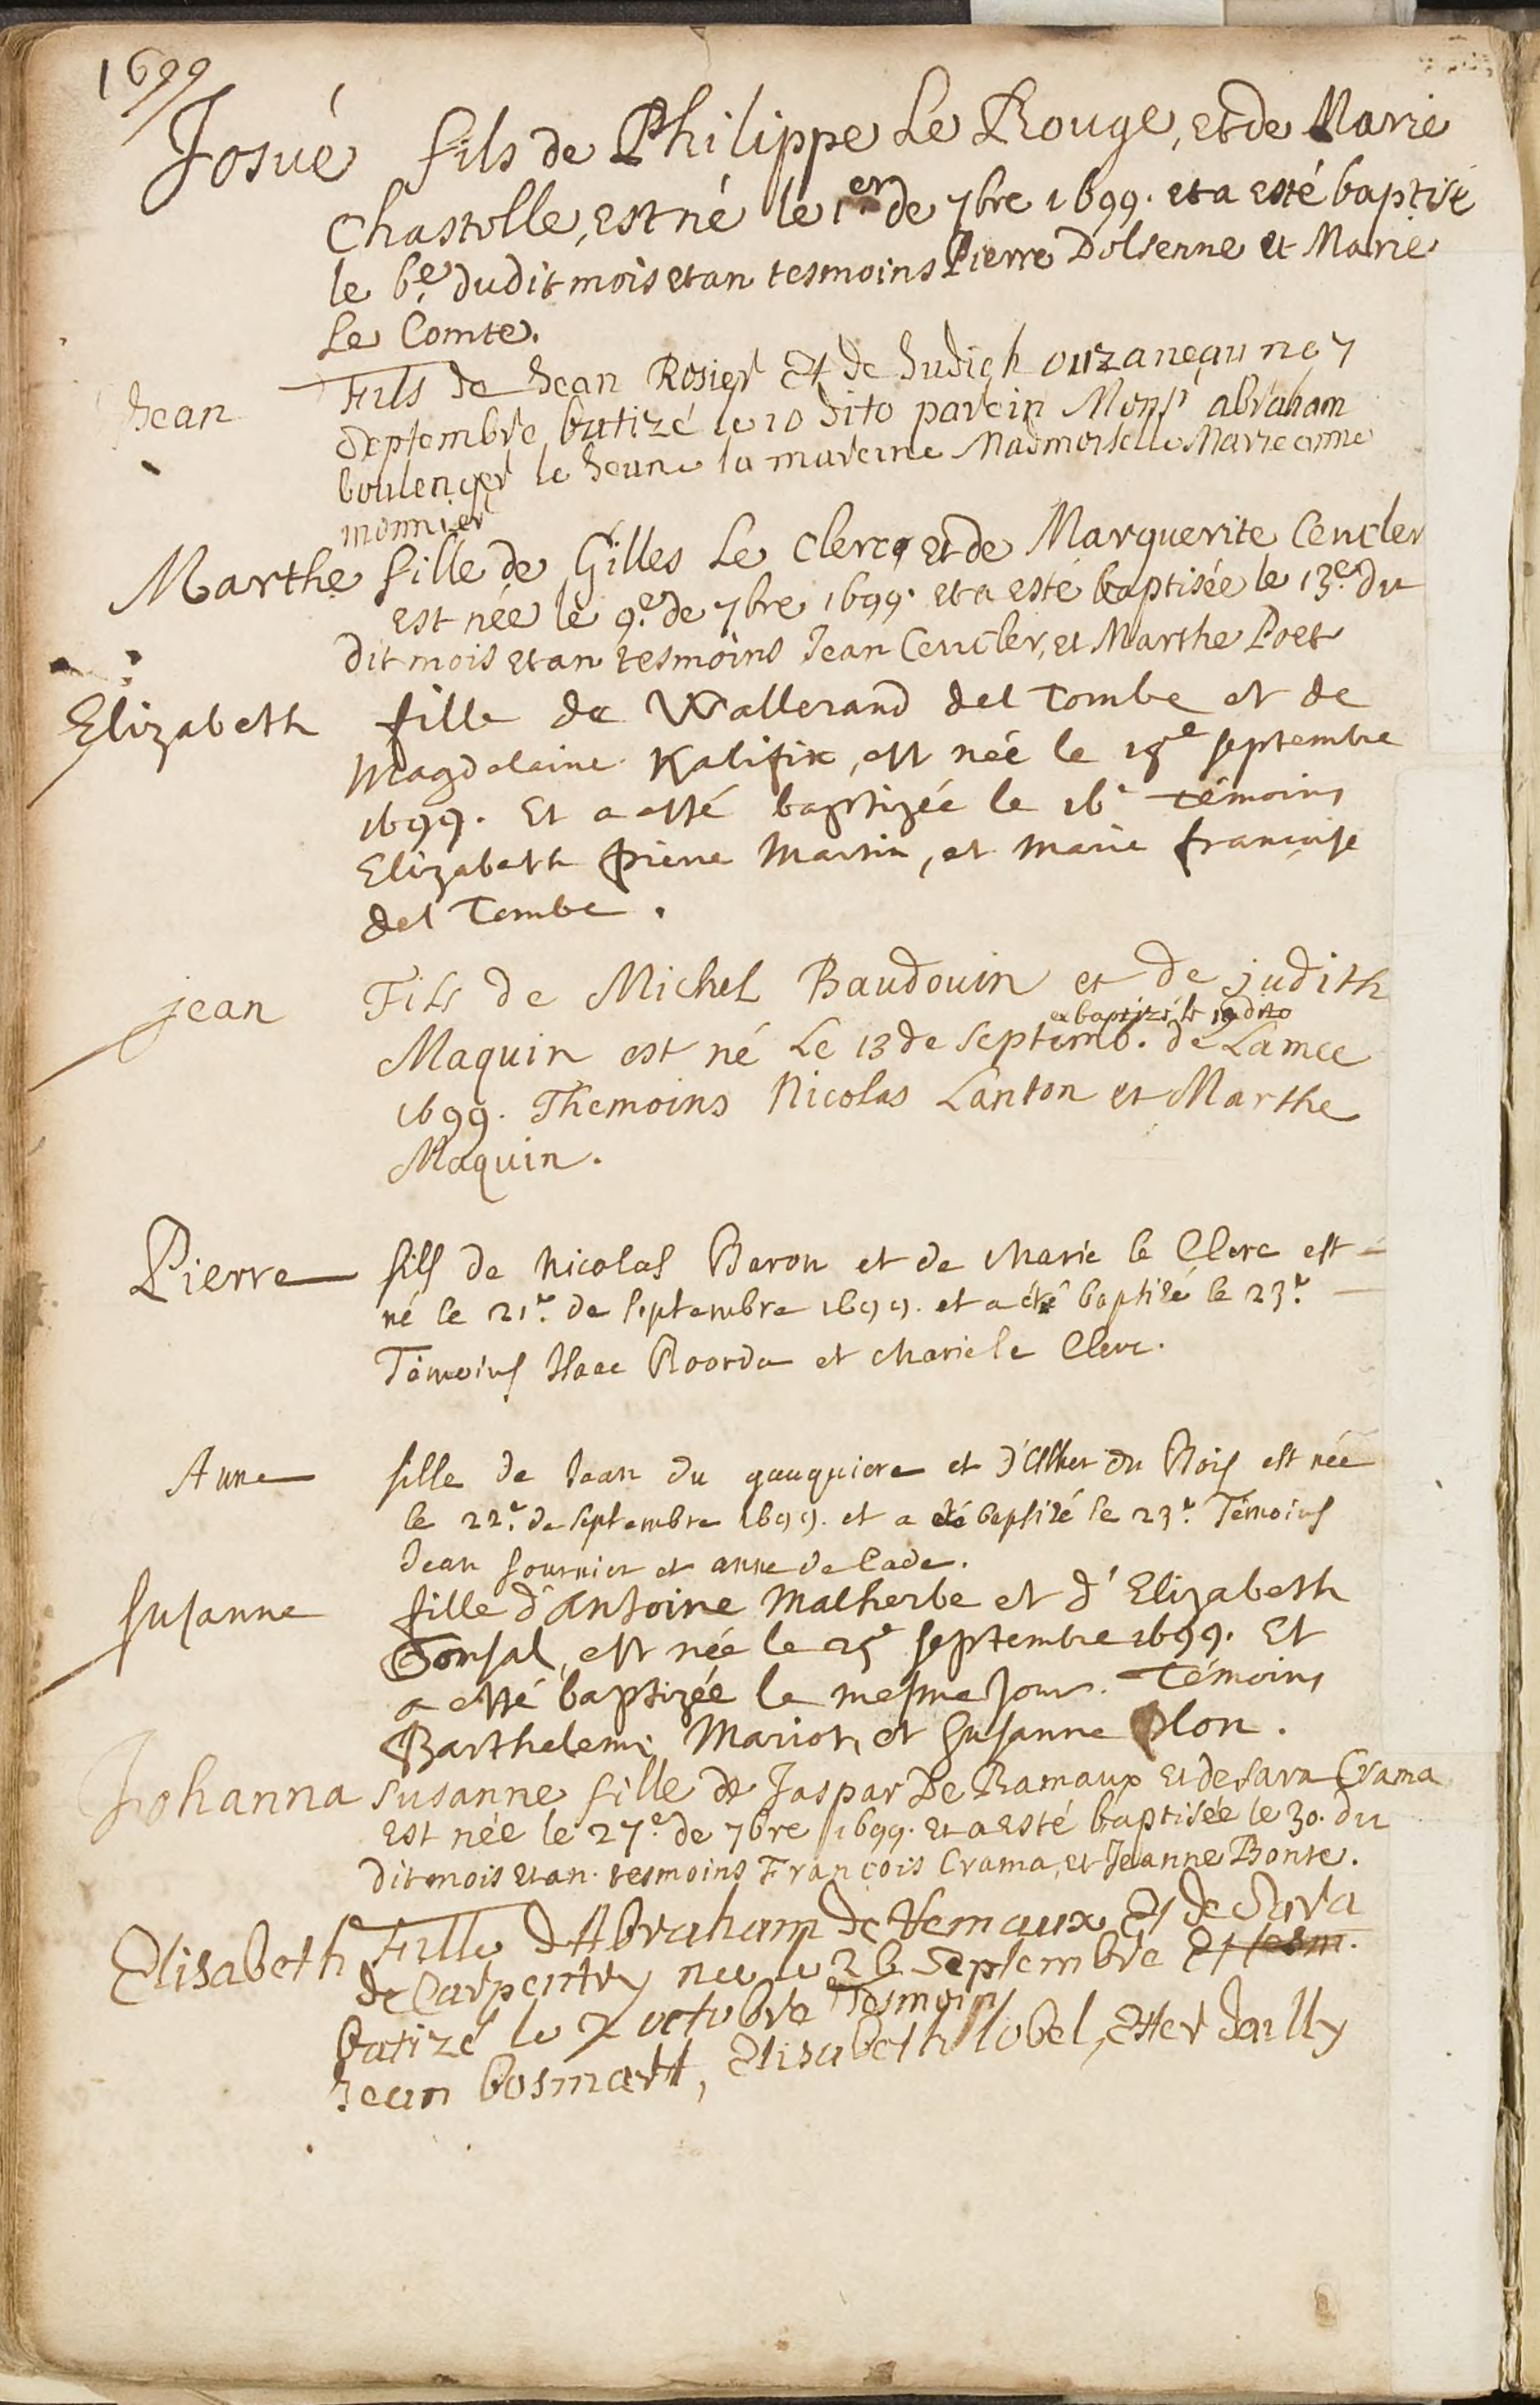 1699
Josué fils de Philippe Le Rouge, et de Marie
Chastolle, est né le 1.er de 7bre 1699. et a esté baptisé
le 6.e dudit mois et an tesmoins Pierre Dolsenne et Marie
Le Comte.
Jean Fils de Jean Rosier Et de Judich ouzaneau ne 7
Septembre batizé le 10 dito parein Monsr abraham
boulenger le Jeune la mareine Madmoiselle Marie anne
monnier
Marthe fille de Gilles Le Clercq et de Marguerite Cencler
est née le 9.e de 7bre 1699. et a esté baptisée le 13.e du
dit mois et an tesmoins Jean Cencler, et Marthe Poet
Elizabeth fille de Wallerand del Tombe et de
Magdelaine Kalifix, est née le 15e septembre
1699. Et a esté baptizée le 16e Témoins
Elizabeth Pierre Martin, et Marie françoise
del Tombe.
jean Fils de Michel Baudouin et de judith
et baptizé le 19 dito
Maquin est né Le 13 de Septemb. de Lamee
1699. Themoins Nicolas Lanton et Marthe
Maquin.
Pierre fils de Nicolas Baron et de Marie le Clerc est
né le 21.e de septembre 1699. et a été baptisé le 23.e
Témoins Isaac Roorda et Marie le Clerc.
Anne fille de Jean du gauquiere et d'Esther du Bois est née
le 22.e de septembre 1699. et a été baptisé le 23.e Témoins
Jean fournier et anne de Cade.
Susanne fille d'Antoine Malherbe et d'Elizabeth
Tonsal, est née le 25e septembre 1699. Et
a esté baptizée le mesme Jour. Témoins
Barthelemi Mariot, et Susanne Olon.
Johanna Susanne fille de Jaspar De Ramaux et de Sara Crama
est née le 27.e de 7bre 1699. et a esté baptisée le 30. du
dit mois et an. tesmoins François Crama, et Jeanne Bonte.
Elisabeth Fille d'Abraham de Hemaux Et de Sara
de Carpentry nee le 26 Septembre Et tesm.
batizé le 7 octobre Tesmoins
Jean bosmartt, Elisabeth lobel, Ester Jailly